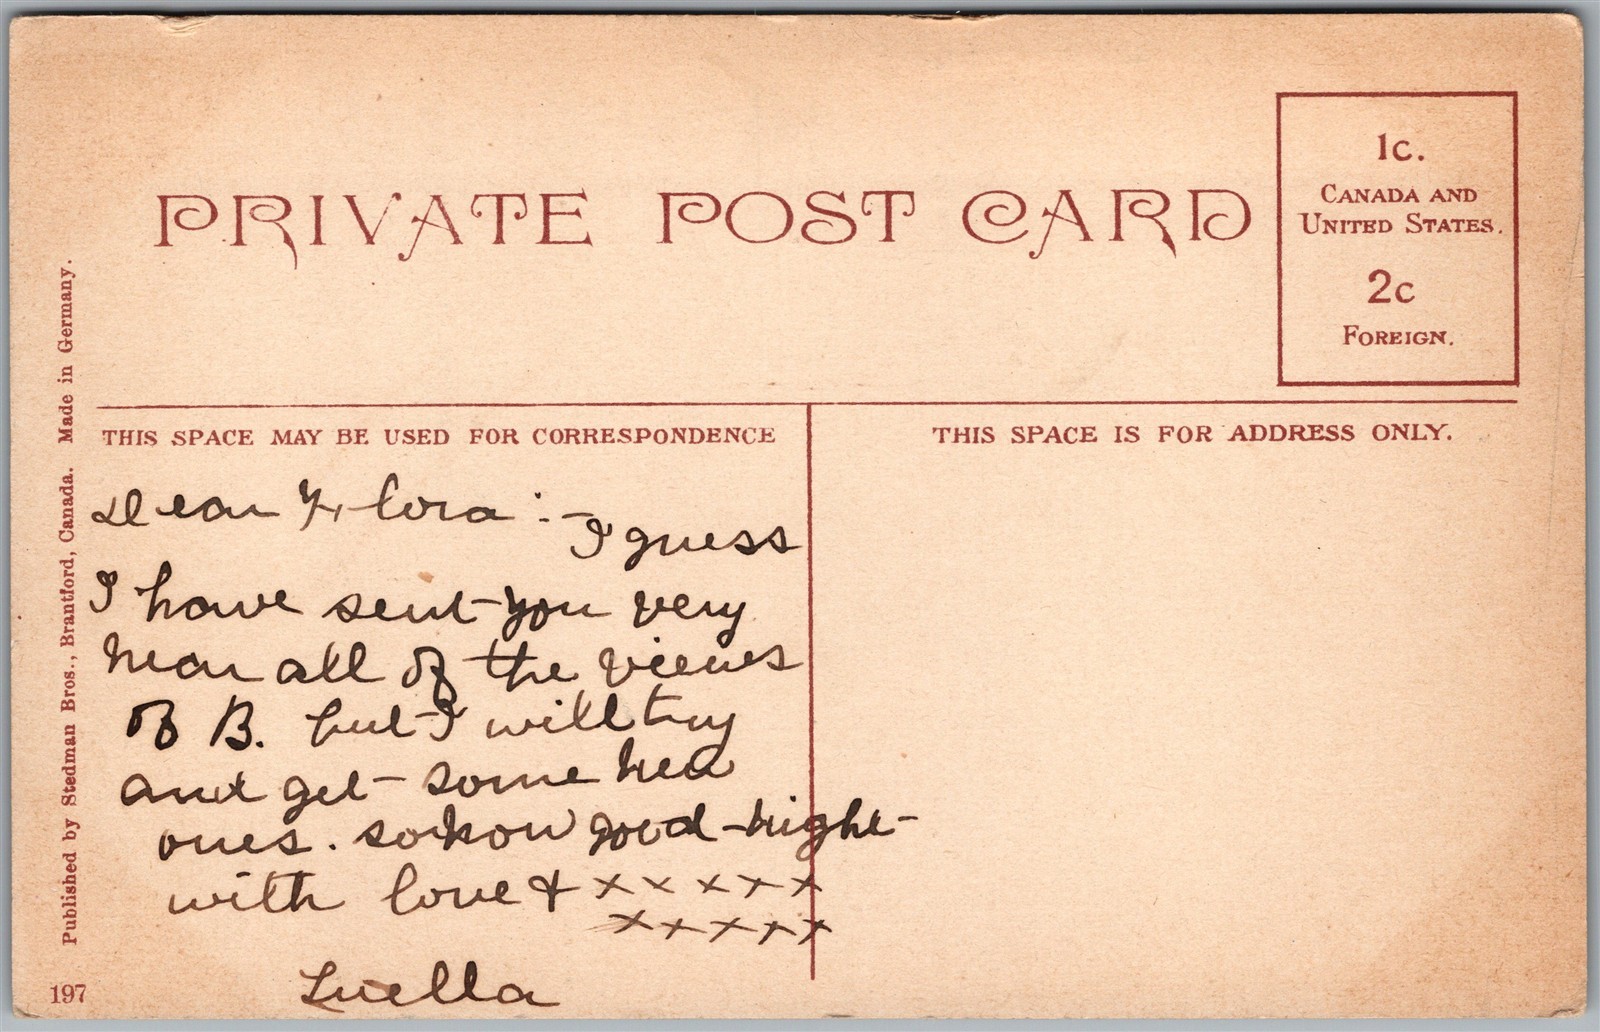 PRIVATE POST CARD
1c.
CANADA AND
UNITED STATES.
2c
FOREIGN.
THIS SPACE MAY BE USED FOR CORRESPONDENCE
THIS SPACE IS FOR ADDRESS ONLY.
Dear Flora :-
I guess
I have sent you very
near all of the views
of B. but I will try
and get some new
ones. so now good-night-
with love & x x x x x
x x x x x
Luella
Published by Stedman Bros., Brantford, Canada. Made in Germany.
197